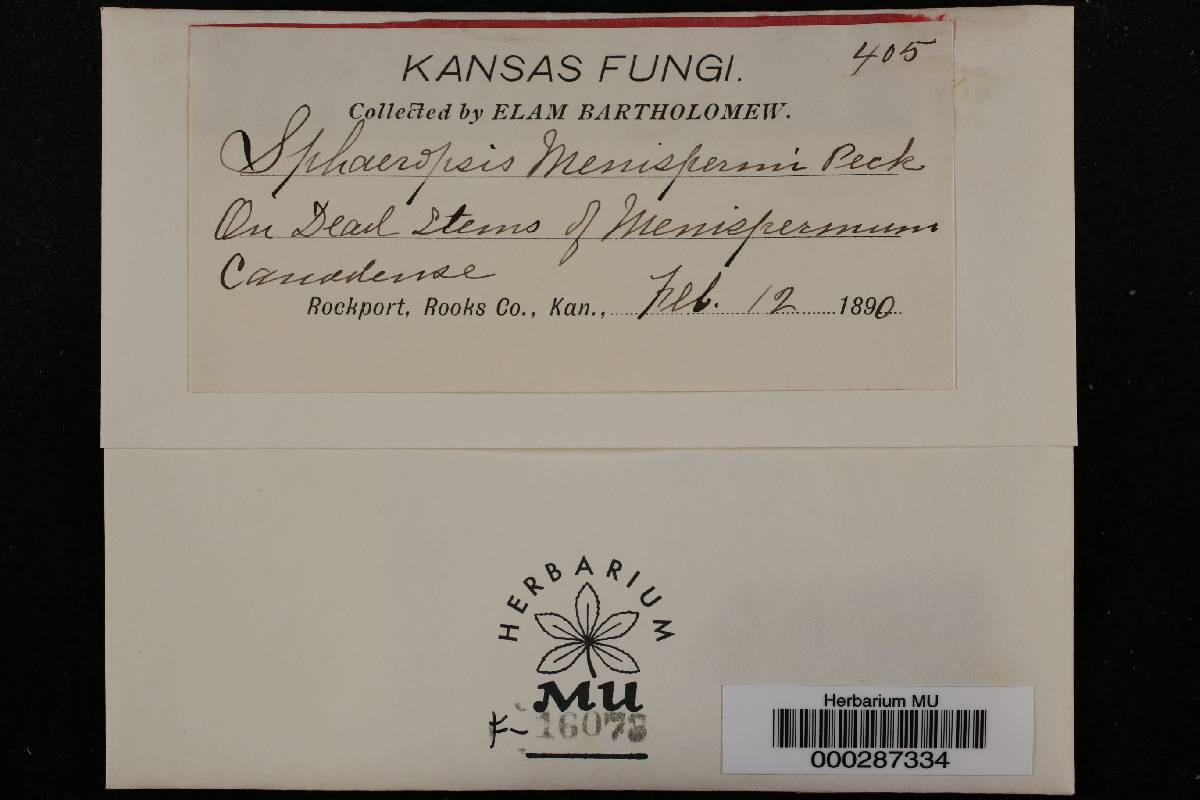 KANSAS FUNGI.
405
Collected by ELAM BARTHOLOMEW.
Sphaeropsis Menispermi Peck
On Dead Stems of Menispermum
Canadense
Rockport, Rooks Co., Kan., Feb. 12 1890
HERBARIUM
MU
F-
Herbarium MU
000287334